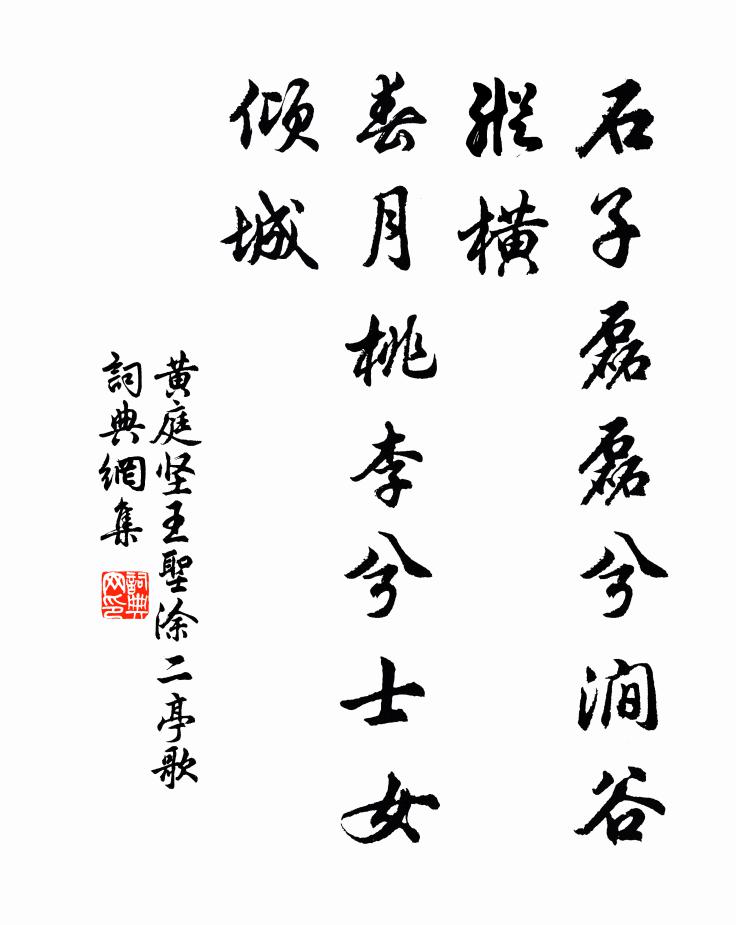 石子磊磊兮澗谷
縱橫
春月桃李兮士女
傾城
黃庭坚王聖涂二亭歌
詞典網集
詞典
网印